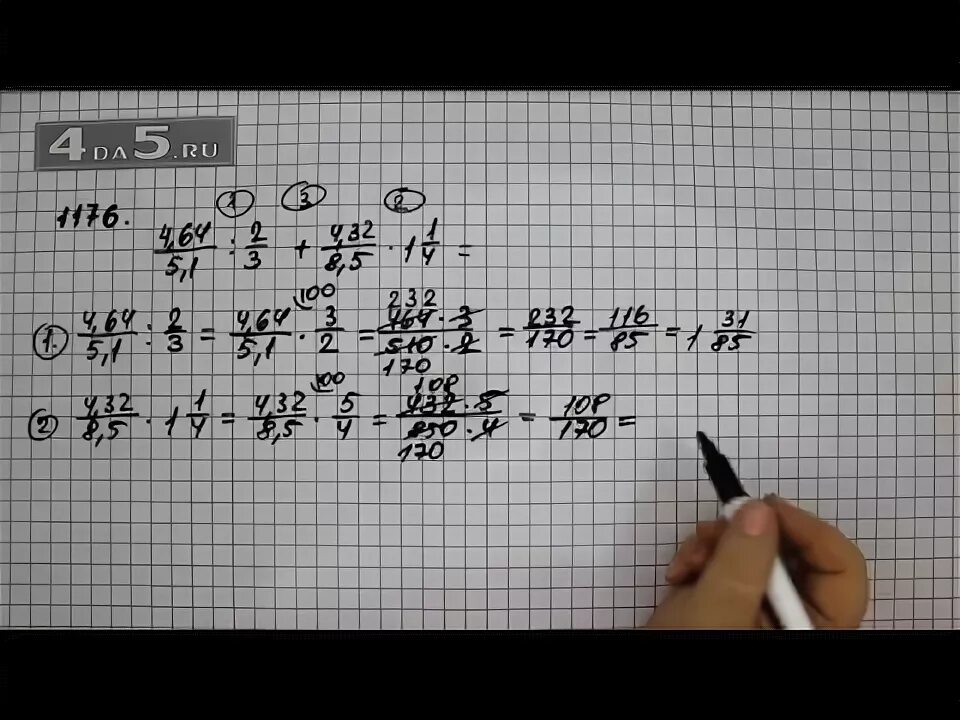 4DA5.RU
① ③ ②
1176.
4,64/5,1 : 2/3 + 4,32/8,5 · 1 1/4 =
①. 4,64/5,1 : 2/3 = 4,64/5,1 · 3/2 \100 = 232 464 · 3/510 · 2 170 = 232/170 = 116/85 = 1 31/85
② 4,32/8,5 · 1 1/4 = 4,32/8,5 · 5/4 \100 = 108 432 · 5/850 · 4 170 = 108/170 =